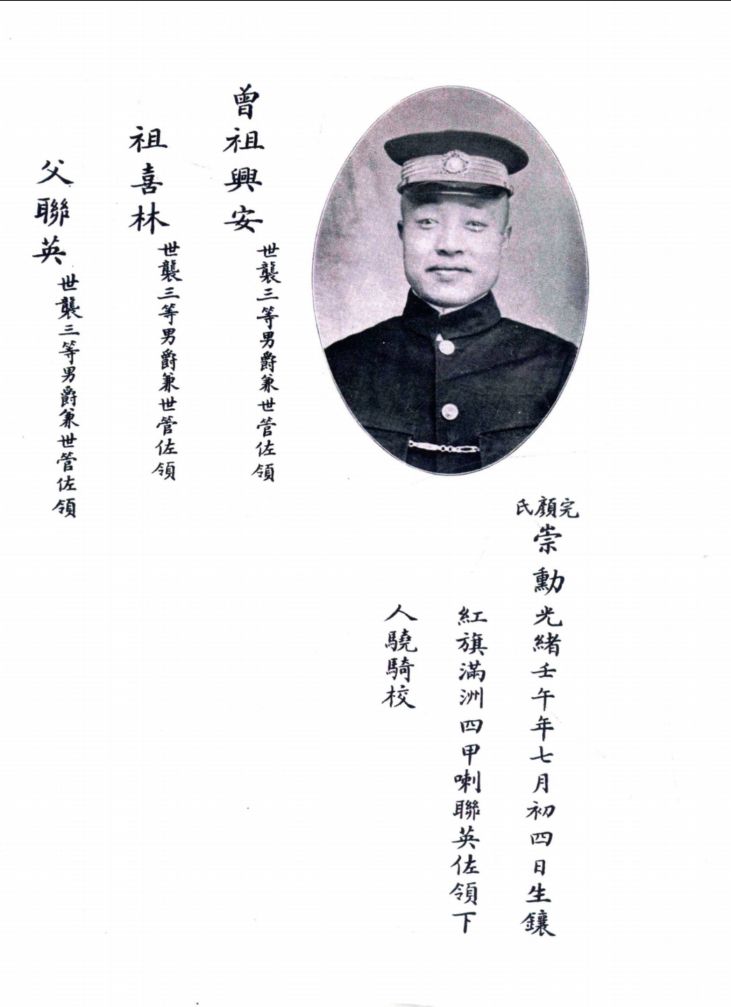 完顏氏
崇勳光緒壬午年七月初四日生鑲
紅旗滿洲四甲喇聯英佐領下
人驍騎校
曾祖興安世襲三等男爵兼世管佐領
祖喜林世襲三等男爵兼世管佐領
父聯英世襲三等男爵兼世管佐領